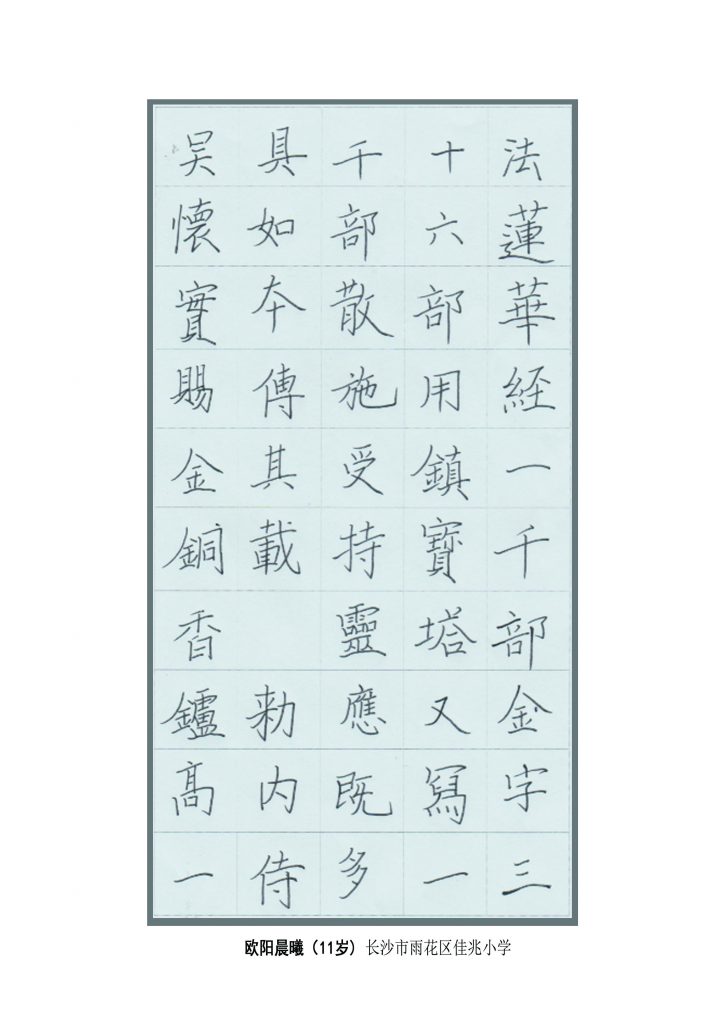 法蓮華経一千部金字三
十六部用鎮寶塔又寫一
千部散施受持靈應既多
具如本傳其載 勑内侍
吴懷實賜金銅香鑪高一
欧阳晨曦（11岁）长沙市雨花区佳兆小学